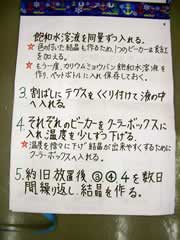 飽和水溶液を同量ずつ入れる。
☆色の付いた結晶も作るため、1つのビーカーは食紅を
加える。
☆もう一度、カリウムミョウバン飽和水溶液を
作り、ペットボトルに入れ保存しておく。
3. 割ばしにテグスをくくり付けて液の中
へ入れる。
4. それぞれのビーカーをクーラーボックスに
入れ温度を少しずつ下げる。
☆温度を徐々に下げ結晶が出来やすくするために
クーラーボックスへ入れる。
5. 約1日放置後③④4を数日
間繰り返し、結晶を作る。